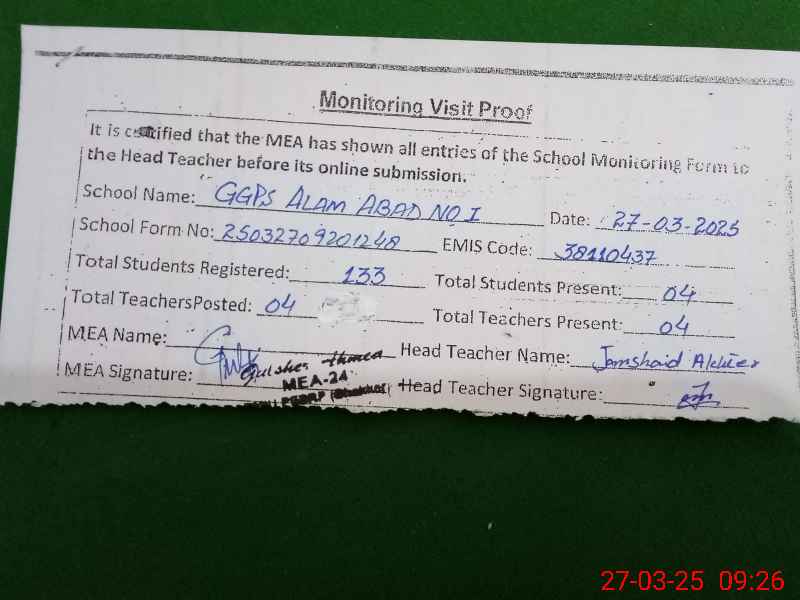 Monitoring Visit Proof
It is certified that the MEA has shown all entries of the School Monitoring Form to
the Head Teacher before its online submission.
School Name: GGPS ALAM ABAD NO I Date: 27-03-2025
School Form No: 25032709201248 EMIS Code: 38110437
Total Students Registered: 133 Total Students Present: 04
Total TeachersPosted: 04 Total Teachers Present: 04
MEA Name: Head Teacher Name: Jamshaid Akhter
MEA Signature: MEA-24 Head Teacher Signature:
27-03-25 09:26